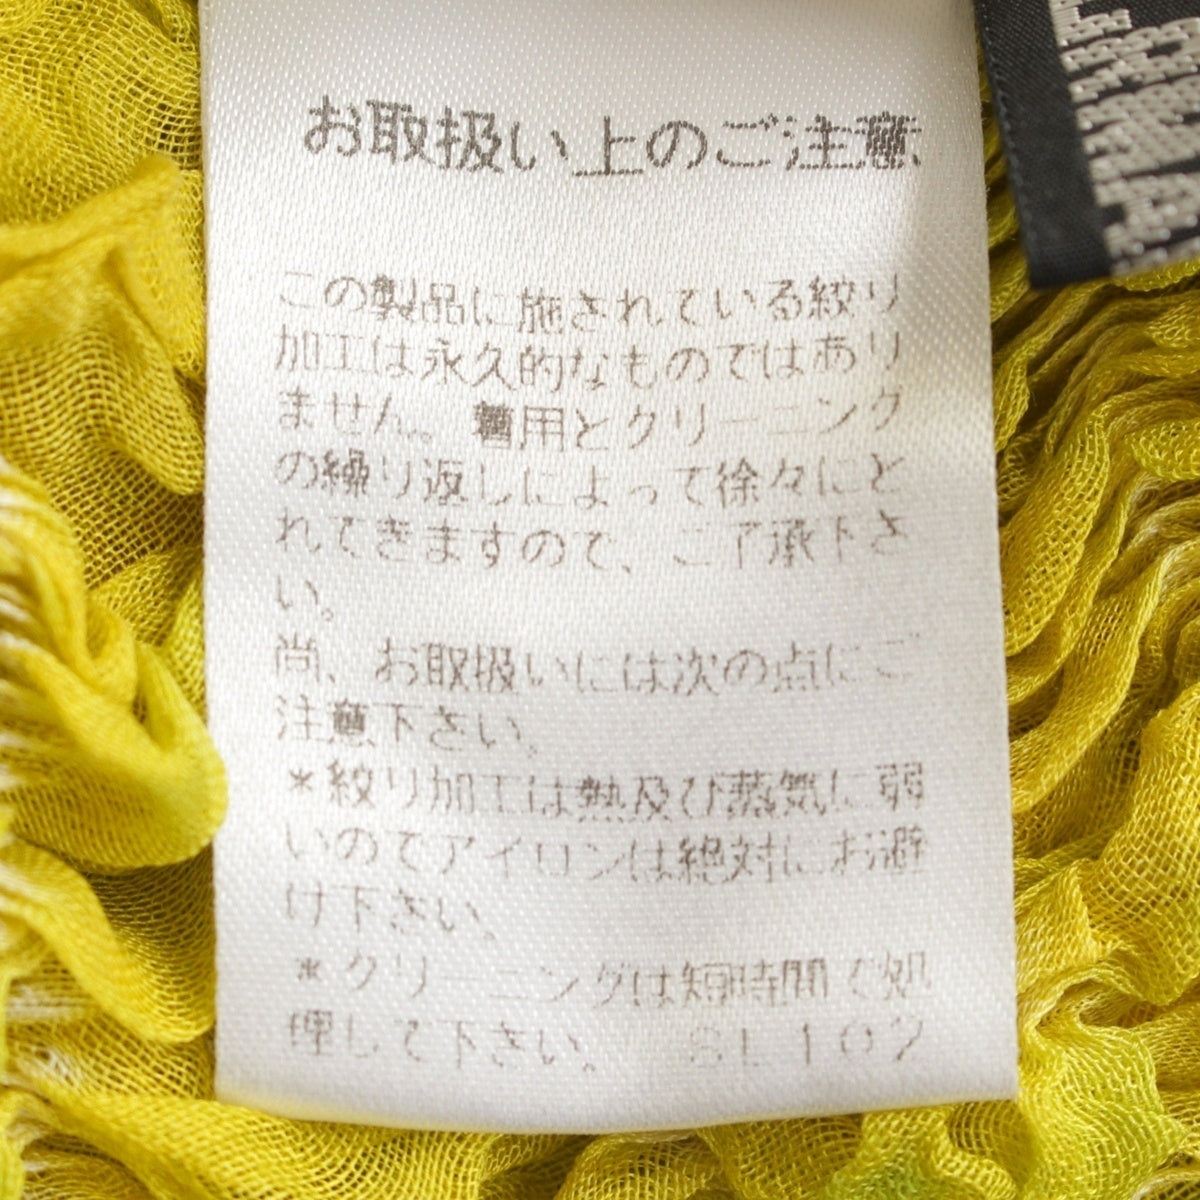 お取扱い上のご注意
この製品に施されている絞り
加工は永久的なものではあり
ません。着用とクリーニング
の繰り返しによって徐々にと
れてきますので、ご了承下さ
い。
尚、お取扱いには次の点にご
注意下さい。
*絞り加工は熱及び蒸気に弱
いのでアイロンは絶対にお避
け下さい。
*クリーニングは短時間で処
理して下さい。 SL107